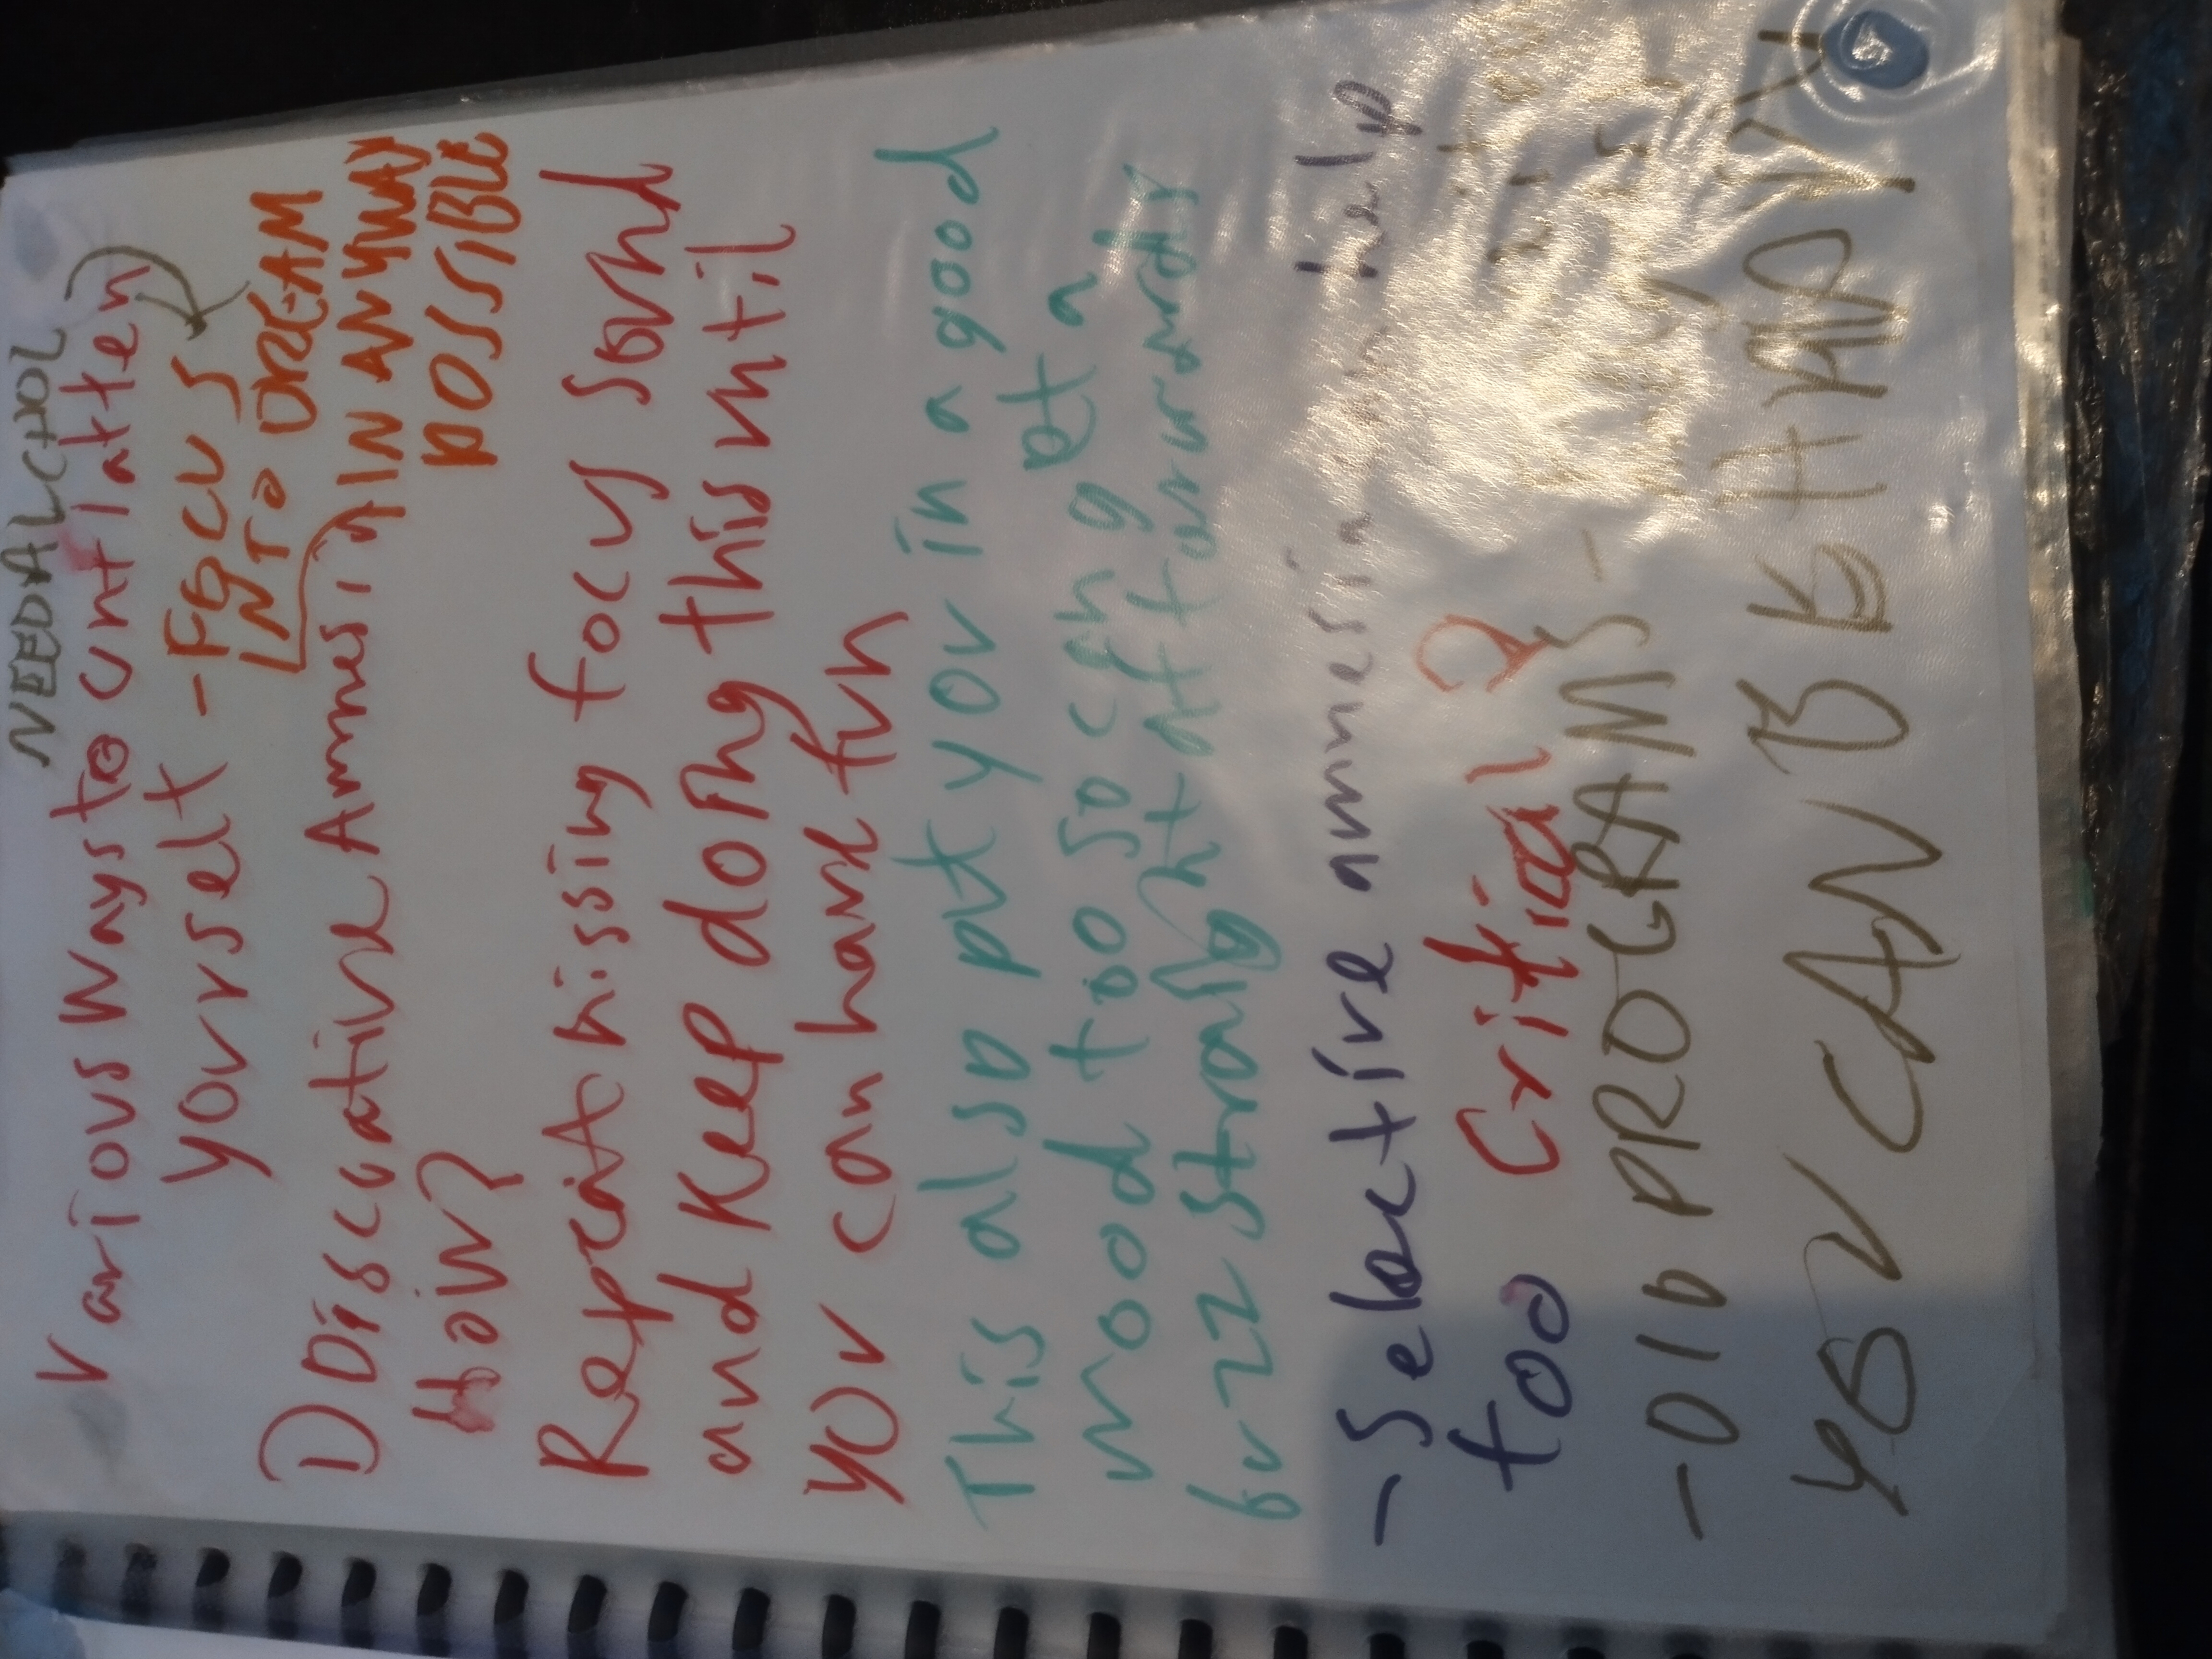 NEED ALCHOL
Various ways to unt latten
yourself - FOCUS
INTO DREAM
1) Discoative Amnesia IN ANYWAY
POSSIBLE
How?
Repeat hissing focus sound
and keep doing this until
you can have fun
This also put you in a good
mood too so can get a
buzz straight afterwards
-Selective amnesia can help
too critial
-old PROGRAMS-
YOU CAN BE HAPPY